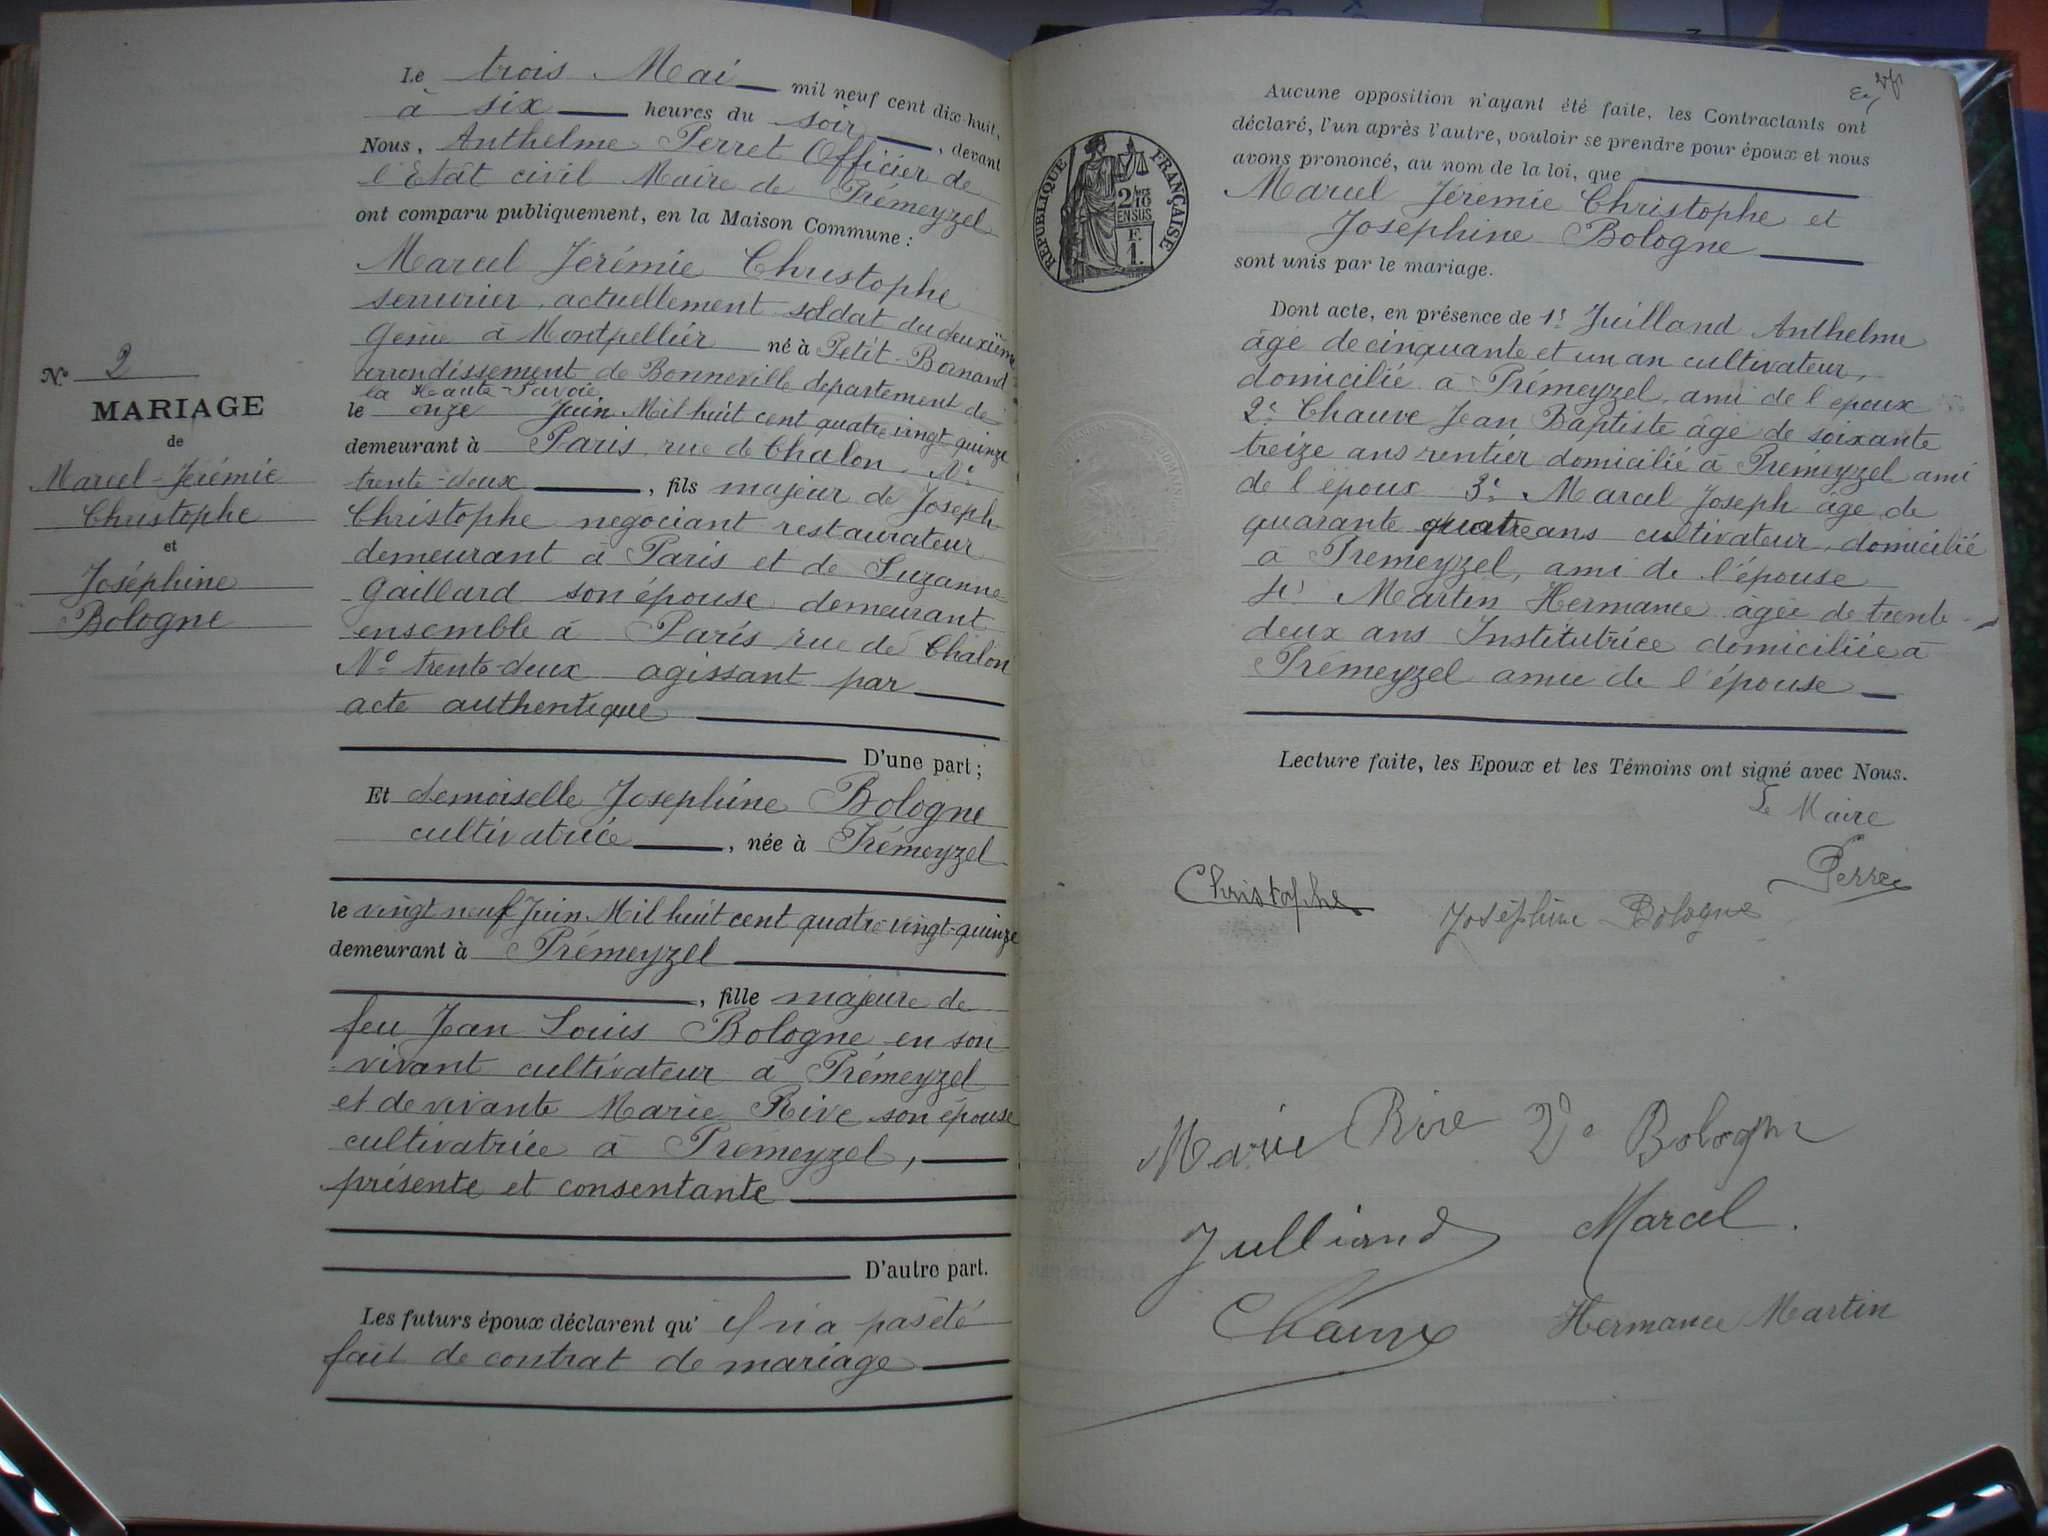 Le trois Mai mil neuf cent dix-huit,
à six heures du soir, devant
Nous, Anthelme Perret Officier de
l'Etat civil Maire de Prémeyzel
ont comparu publiquement, en la Maison Commune :
Marcel Jérémie Christophe
serrurier, actuellement soldat du deuxième
Génie à Montpellier né à Petit-Bornand
arrondissement de Bonneville departement de
la Haute-Savoie
le onze Juin Mil huit cent quatre vingt quinze
demeurant à Paris, rue de Chalon, N°
trente-deux, fils majeur de Joseph
Christophe negociant restaurateur
demeurant à Paris et de Suzanne
Gaillard son épouse demeurant
ensemble à Paris rue de Chalon
N° trente-deux agissant par
acte authentique
D'une part ;
Et demoiselle Josephine Bologne
cultivatrice, née à Prémeyzel
le vingt neuf Juin Mil huit cent quatre vingt-quinze
demeurant à Prémeyzel
, fille majeure de
feu Jean Louis Bologne en son
vivant cultivateur à Prémeyzel
et de vivante Marie Rive son épouse
cultivatrice à Premeyzel,
présente et consentante
D'autre part.
Les futurs époux déclarent qu'il n'a pas été
fait de contrat de mariage
N° 2
MARIAGE
de
Marcel-Jérémie
Christophe
et
Joséphine
Bologne
Aucune opposition n'ayant été faite, les Contractants ont
déclaré, l'un après l'autre, vouloir se prendre pour époux et nous
avons prononcé, au nom de la loi, que
Marcel Jérémie Christophe et
Josephine Bologne
sont unis par le mariage.
Dont acte, en présence de 1° Juilland Anthelme
âgé de cinquante et un an cultivateur,
domicilié à Prémeyzel, ami de l'epoux
2° Chauve Jean Baptiste âgé de soixante
treize ans rentier domicilié à Prémeyzel ami
de l'époux 3° Marcel Joseph âgé de
quarante quatre ans cultivateur, domicilié
à Premeyzel, ami de l'épouse
4° Martin Hermance âgée de trente-
deux ans Institutrice domiciliée à
Prémeyzel amie de l'épouse
Lecture faite, les Epoux et les Témoins ont signé avec Nous.
Le Maire
Perret
Christophe
Joséphine Bologne
Marie Rive Ve Bologne
Julliand
Marcel.
Hermance Martin
RÉPUBLIQUE FRANÇAISE
2/10
EN SUS
F.
1.